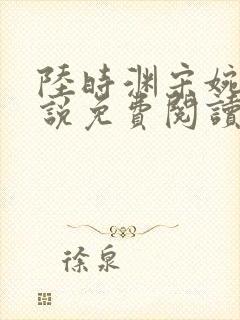 陸時渊宋婉
説免費閱讀
徐泉